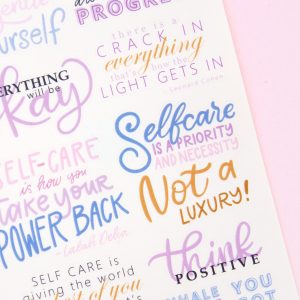 gentle
yourself
PROGRESS
there is a
CRACK IN
everything
that's how the
LIGHT GETS IN
- Leonard Cohen
EVERYTHING
will be
okay
Selfcare
IS A PRIORITY
AND NECESSITY
Not a
LUXURY!
SELF-CARE
is how you
take your
POWER BACK
- Lalah Delia
think
POSITIVE
SELF CARE is
giving the world
best of you